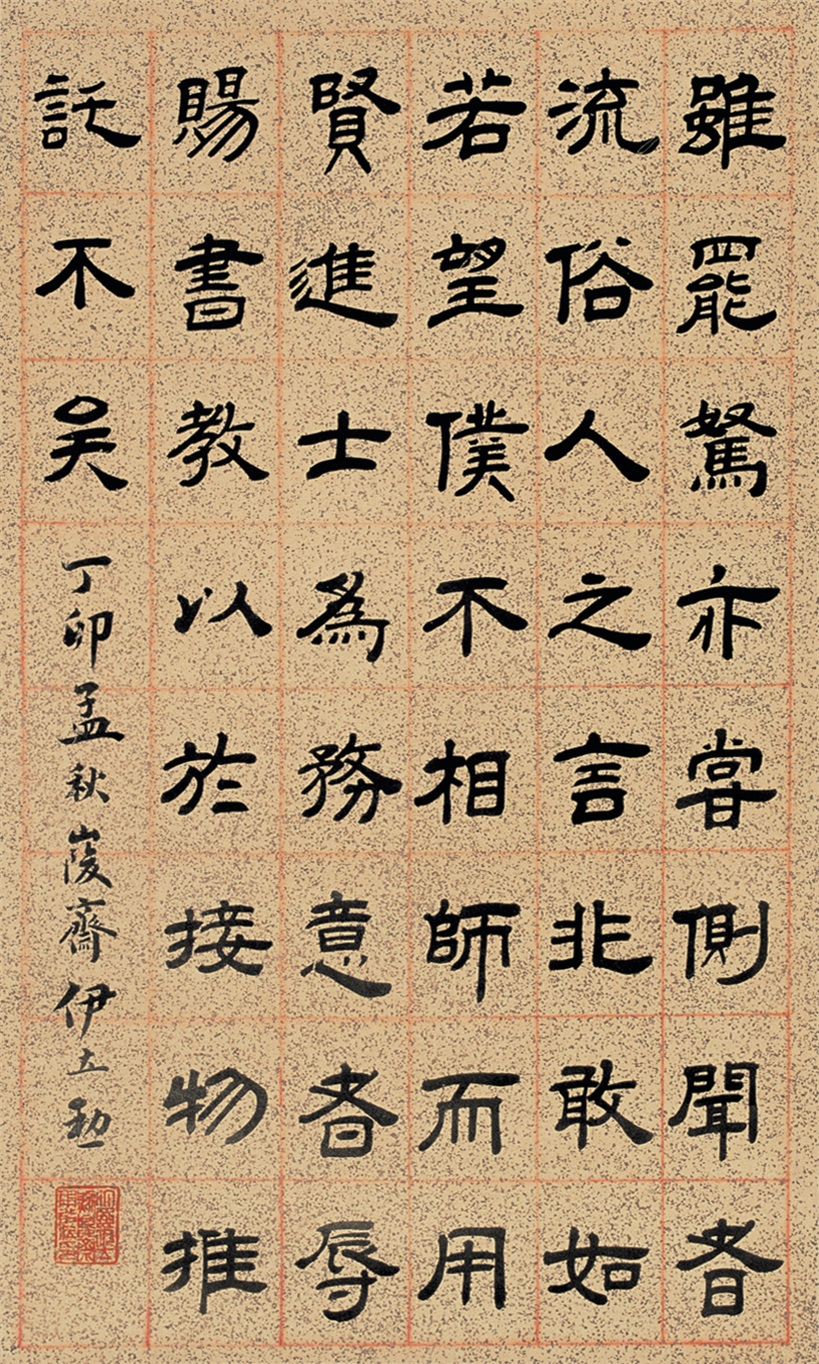 雖罷駑亦嘗側聞者
流俗人之言非敢如
若望僕不相師而用
賢進士為務意者辱
賜書教以於接物推
託不吴丁卯孟秋崚齋伊立勳